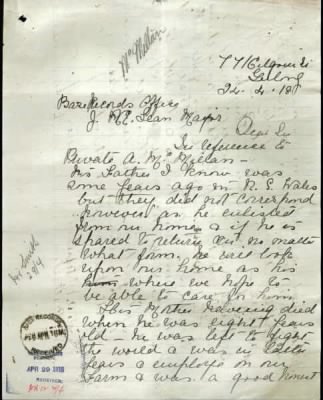 McMillan
77 Kilgour St
Geelong
22. 4. 18
Base Records Office
J. M. Lean Major
Dear Sir
In reference to
Private A. Mc Millan —
His Father I know was
some years ago in N. S. Wales
but they did not correspond
however as he enlisted
from our home & if he is
spared to return no matter
what form. he will look
upon our home as his
home where we hope to
be able to care for him
His Mother haveing died
when he was eight years
old — he was left to fight
the world & was in later
years a employe on our
farm & was a good honest
BASE RECORDS
RECEIVED
APR 29 1918